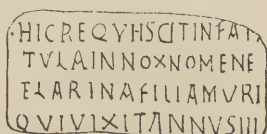 HICREQVHSCITINFAN
TVLAINNOXNOMENE
ELARINAFILIAMVRI
QVIVIXITANNVSIII